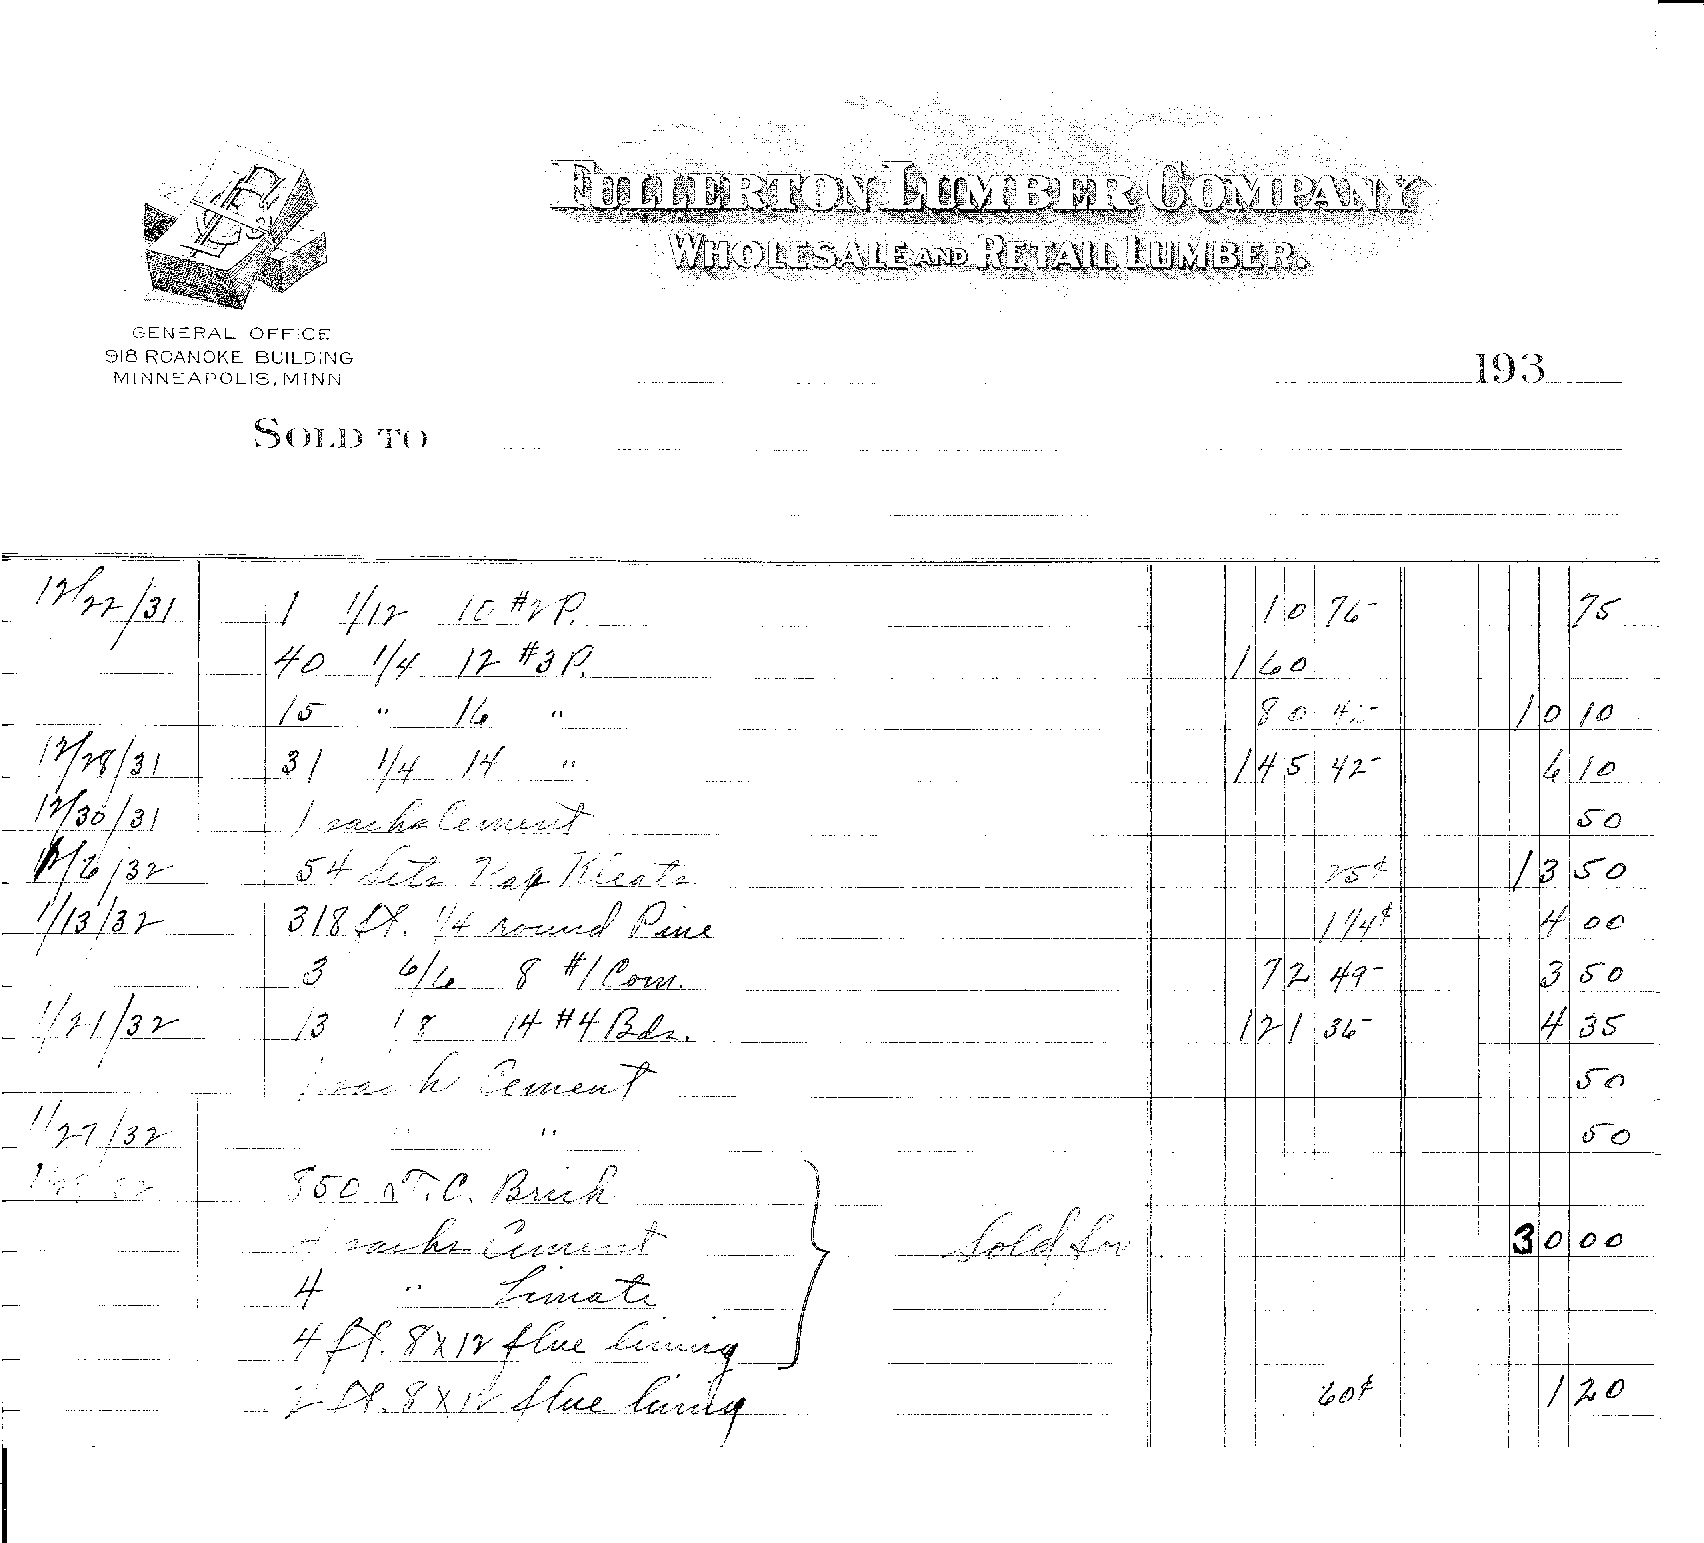 FULLERTON LUMBER COMPANY
WHOLESALE AND RETAIL LUMBER.
GENERAL OFFICE
918 ROANOKE BUILDING
MINNEAPOLIS, MINN
193
SOLD TO
12/22/31 1 1/12 10 #2 P. 10 75 75
40 1/4 12 #3 P. 160
15 " 16 " 80 42- 10 10
12/28/31 31 1/4 14 " 145 42- 6 10
12/30/31 1 sacks Cement 50
/6/32 54 Sets Kleats 25¢ 13 50
1/13/32 318 ft. 1/4 round Pine 1 1/4¢ 4 00
3 6/6 8 #1 Com. 72 49- 3 50
1/21/32 13 1 8 14 #4 Bds. 121 36- 4 35
1 sack Cement 50
1/27/32 " " 50
850 T.C. Brick
sacks Cement Sold for 30 00
4 "
4 ft. 8 X 12 flue lining
2 ft. 8 X 12 flue lining 60¢ 1 20